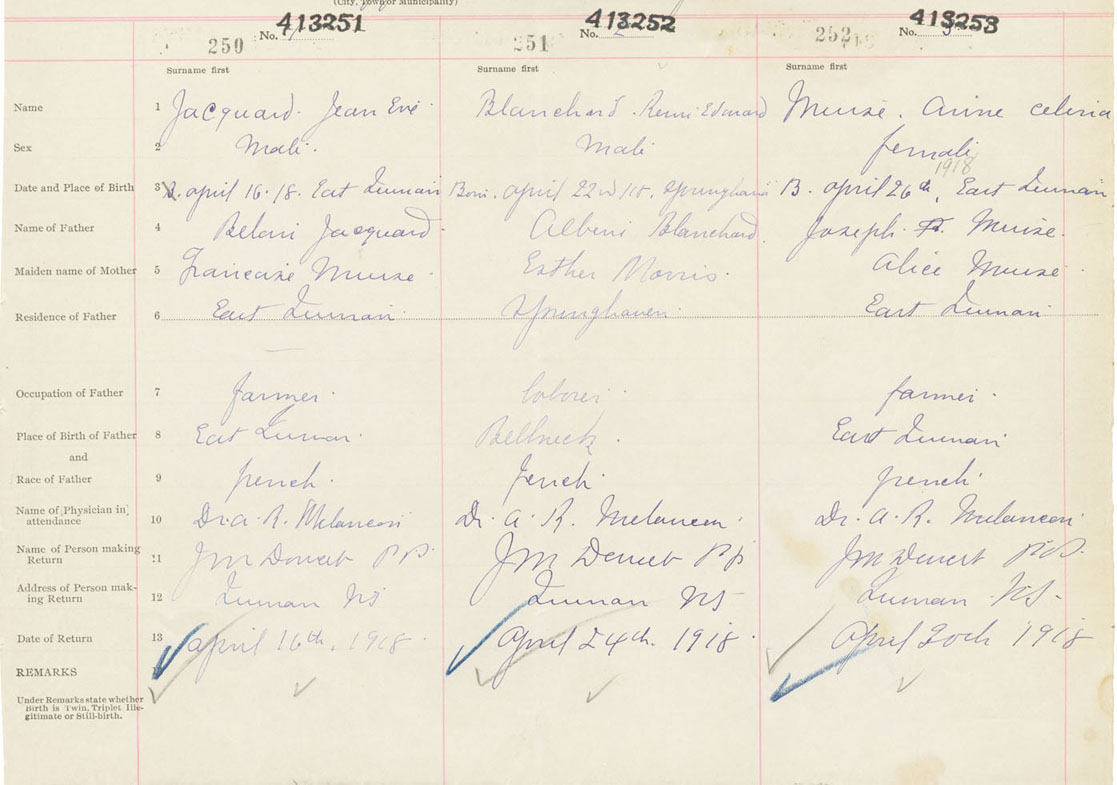 (City, Town or Municipality)
413251 413252 413253
250 No. 1 251 No. 2 252 No. 3
Surname first Surname first Surname first
Name 1 Jacquard. Jean Evé Blanchard. Remi Edward Muise. Anne Celina
Sex 2 Male. Male female
1918
Date and Place of Birth 3 B. april 16.18. East Quinan Born. april 22nd/18. Springhaven B. april 26th, East Quinan
Name of Father 4 Beloni Jacquard. Albeni Blanchard. Joseph Muise.
Maiden name of Mother 5 Francaise Muise. Esther Morris. Alice Muise.
Residence of Father 6 East Quinan. Springhaven. East Quinan
Occupation of Father 7 farmer. laborer. farmer.
Place of Birth of Father 8 East Quinan. Bellneck. East Quinan
and
Race of Father 9 french. french. french.
Name of Physician in attendance 10 Dr. A. R. Melancon Dr. A. R. Melancon. Dr. A. R. Melancon
Name of Person making Return 11 J M Doucet P.P. J M Doucet P.P. J M Doucet P.P.
Address of Person making Return 12 Quinan NS Quinan NS Quinan. N.S.
Date of Return 13 april 16th. 1918. April 24th. 1918 April 30th 1918
REMARKS
Under Remarks state whether
Birth is Twin, Triplet Ille-
gitimate or Still-birth.